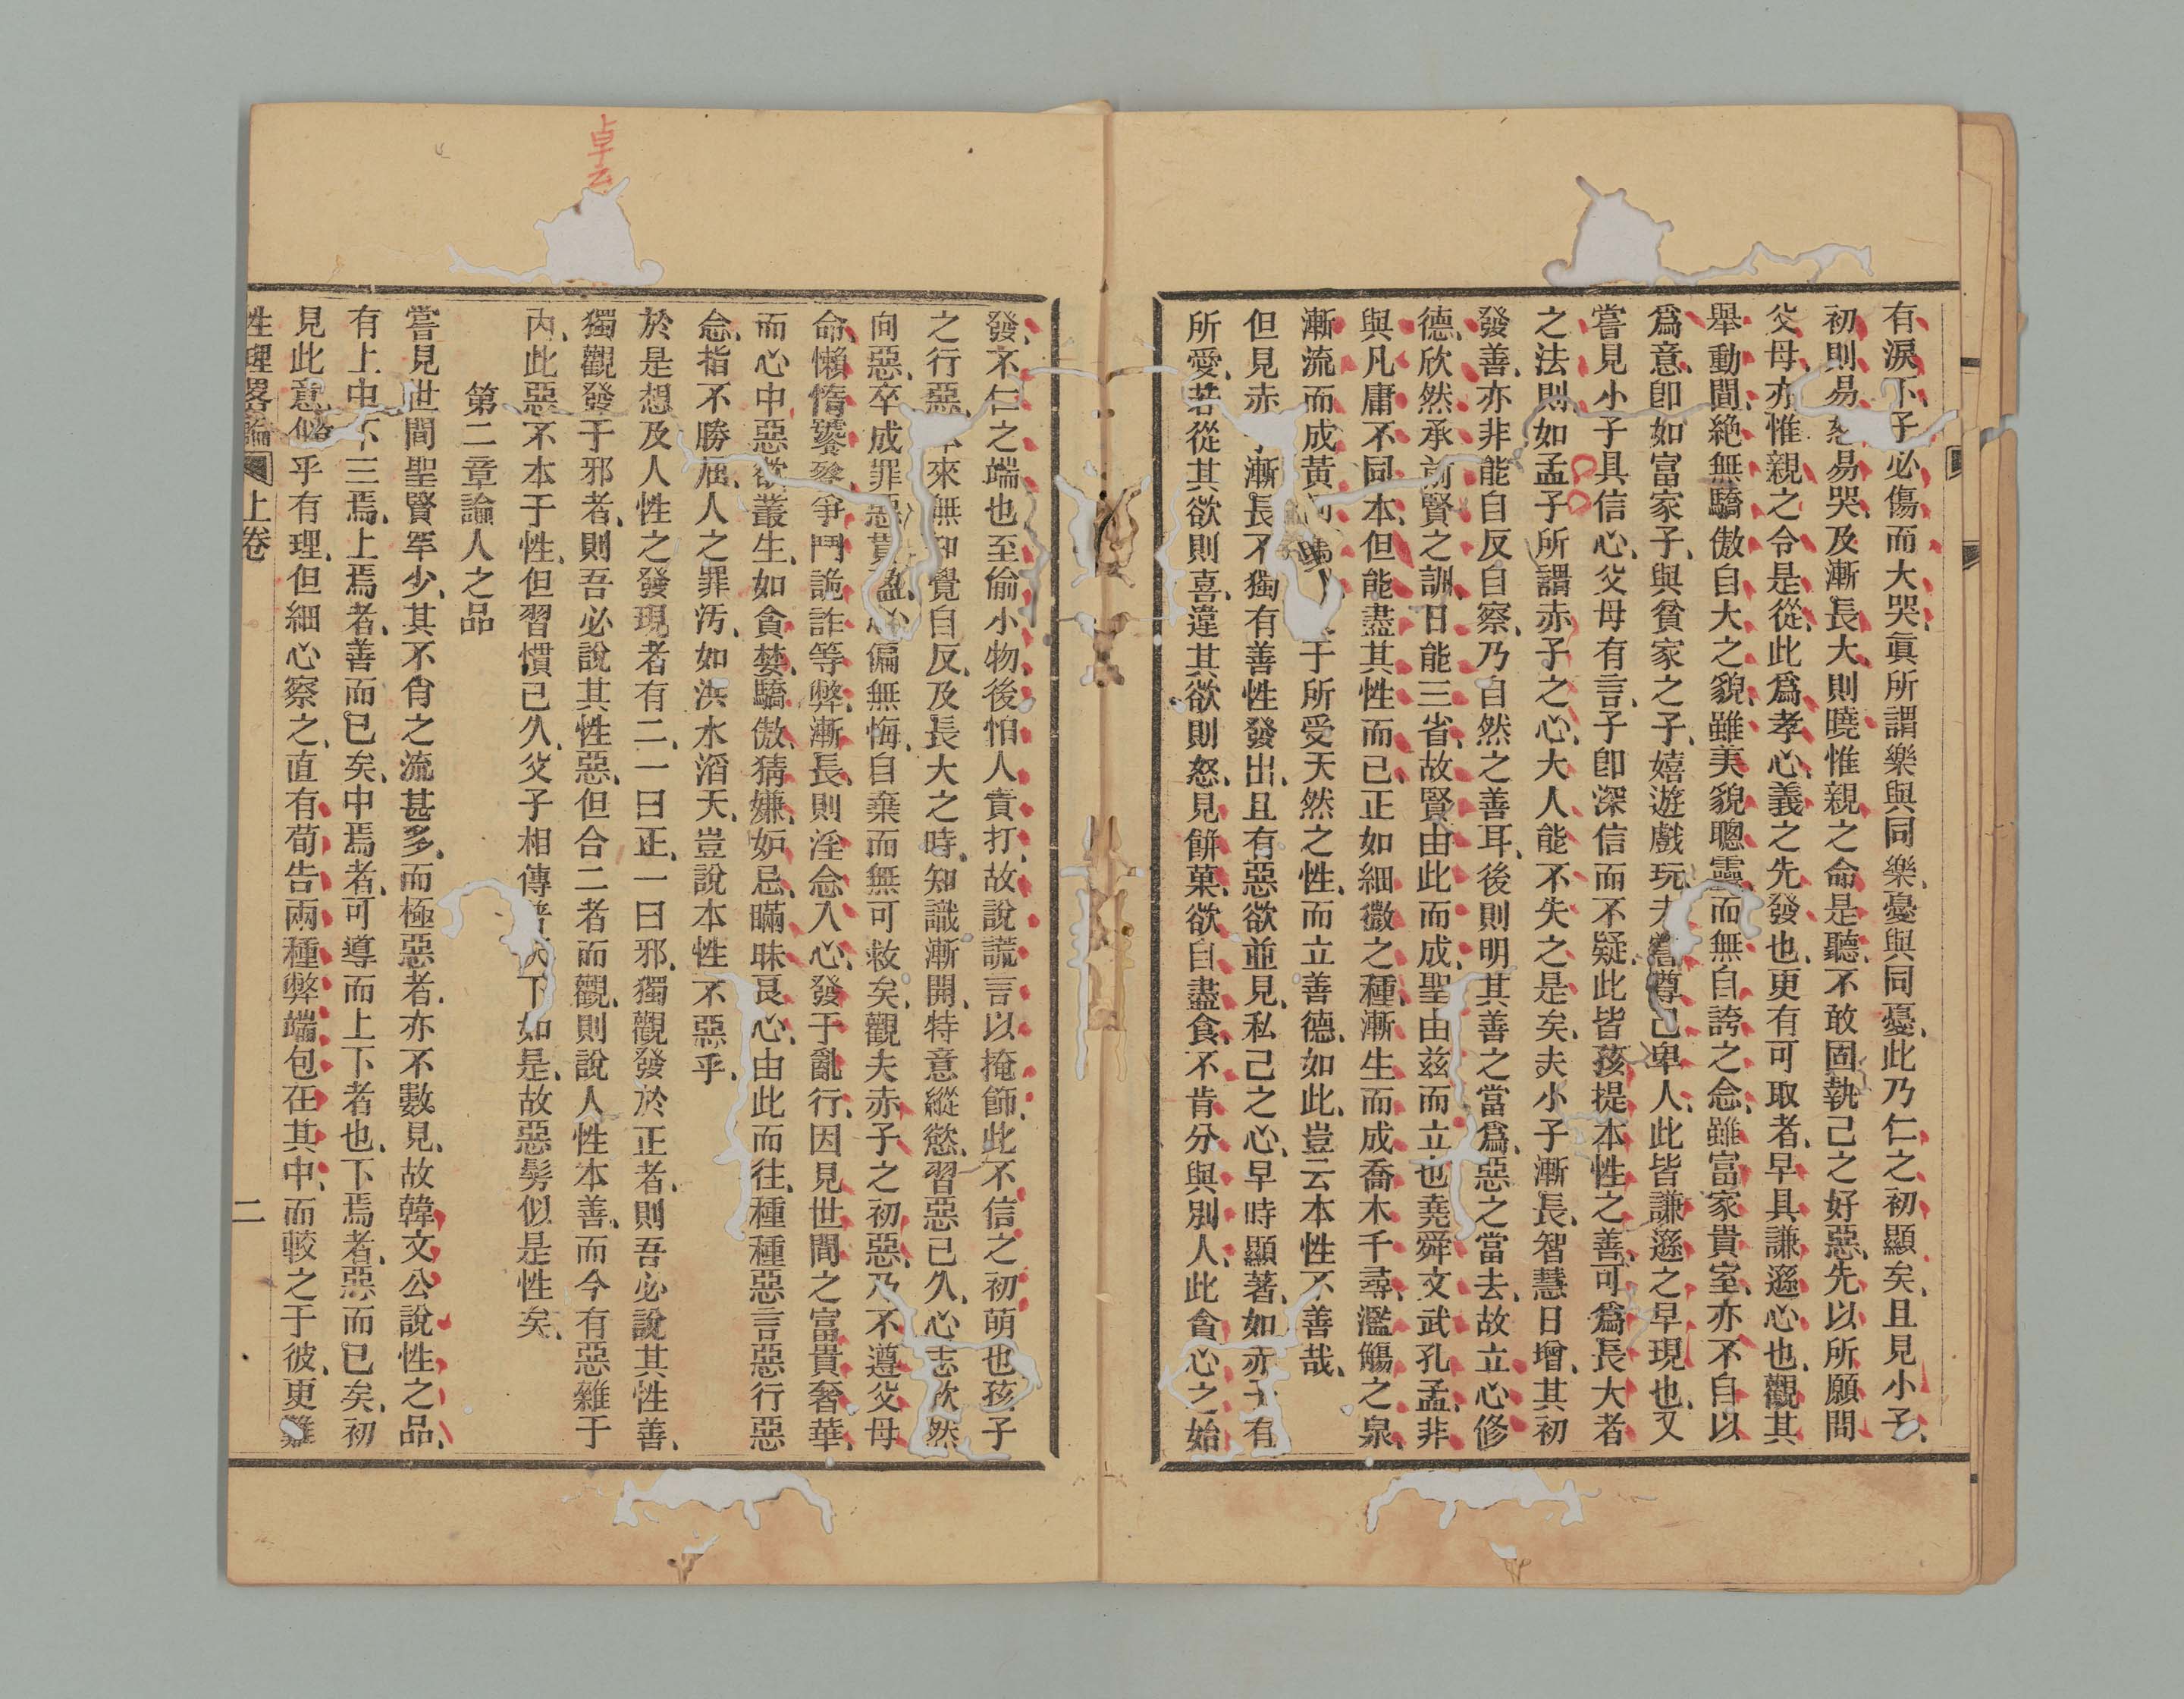 有淚下子必傷而大哭眞所謂樂與同樂、憂與同憂、此乃仁之初顯矣、且見小子、
初則易怒易哭、及漸長大、則曉惟親之命是聽、不敢固執己之好惡、先以所願問
父母、亦惟親之令是從、此爲孝心、義之先發也、更有可取者、早具謙遜心也、觀其
舉動間、絶無驕傲自大之貌、雖美貌聰靈、而無自誇之念、雖富家貴室、亦不自以
爲意、卽如富家子、與貧家之子、嬉遊戲玩、未嘗尊己卑人、此皆謙遜之早現也、又
嘗見小子具信心、父母有言、子卽深信而不疑、此皆孩提本性之善、可爲長大者
之法則、如孟子所謂赤子之心、大人能不失之是矣、夫小子漸長、智慧日增、其初
發善、亦非能自反自察、乃自然之善耳、後則明其善之當爲、惡之當去、故立心修
德、欣然承前賢之訓、日能三省、故賢由此而成、聖由茲而立也、堯舜文武孔孟、非
與凡庸不同本、但能盡其性而已、正如細微之種、漸生而成喬木千尋、濫觴之泉、
漸流而成黃河 于所受天然之性、而立善德、如此、豈云本性不善哉、
但見赤子漸長、不獨有善性發出、且有惡欲並見、私己之心、早時顯著、如赤子有
所愛、若從其欲則喜、違其欲則怒、見餅菓、欲自盡食、不肯分與別人、此貪心之始
發、不仁之端也、至偷小物、後怕人責打、故說謊言以掩飾、此不信之初萌也、孩子
之行惡、本來無知覺自反、及長大之時、知識漸開、特意縱慾、習惡已久、心志欣然
向惡、卒成罪惡貫盈、心偏無悔、自棄而無可救矣、觀夫赤子之初惡、乃不遵父母
命、懶惰饕餮、爭鬥詭詐等弊、漸長、則淫念入心、發于亂行、因見世間之富貴奢華、
而心中惡欲叢生、如貪婪、驕傲、猜嫌、妒忌、瞞昧良心、由此而往、種種惡言惡行惡
念、指不勝屈、人之罪汚、如洪水滔天、豈說本性不惡乎、
於是想及人性之發現者有二、一曰正、一曰邪、獨觀發於正者、則吾必說其性善、
獨觀發于邪者、則吾必說其性惡、但合二者而觀、則說人性本善、而今有惡雜于
內、此惡不本于性、但習慣已久、父子相傳、普天下如是、故惡髣似是性矣、
第二章論人之品
嘗見世間聖賢罕少、其不肖之流甚多、而極惡者、亦不數見、故韓文公說性之品、
有上中下三焉、上焉者、善而已矣、中焉者、可導而上下者也、下焉者、惡而已矣、初
見此意、似乎有理、但細心察之、直有荀告兩種弊端包在其中、而較之于彼、更難
性理畧論 上卷 二
卓云